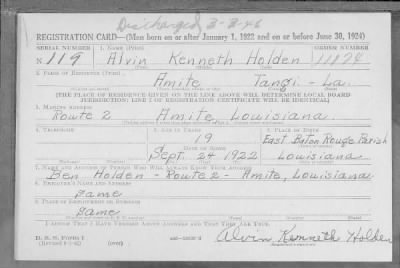 Discharged 3-3-46
REGISTRATION CARD—(Men born on or after January 1, 1922 and on or before June 30, 1924)
SERIAL NUMBER 1. NAME (Print) ORDER NUMBER
N 119 Alvin Kenneth Holden 11124
2. PLACE OF RESIDENCE (Print)
Amite Tangi - La.
[THE PLACE OF RESIDENCE GIVEN ON THE LINE ABOVE WILL DETERMINE LOCAL BOARD
JURISDICTION; LINE 2 OF REGISTRATION CERTIFICATE WILL BE IDENTICAL]
3. MAILING ADDRESS
Route 2 Amite, Louisiana.
4. TELEPHONE 5. AGE IN YEARS 6. PLACE OF BIRTH
19 East Baton Rouge Parish
DATE OF BIRTH
Sept. 24 1922 Louisiana.
7. NAME AND ADDRESS OF PERSON WHO WILL ALWAYS KNOW YOUR ADDRESS
Ben Holden - Route 2 - Amite, Louisiana
8. EMPLOYER'S NAME AND ADDRESS
Same
9. PLACE OF EMPLOYMENT OR BUSINESS
Same
I AFFIRM THAT I HAVE VERIFIED ABOVE ANSWERS AND THAT THEY ARE TRUE.
D. S. S. FORM 1
(over)
Alvin Kenneth Holden